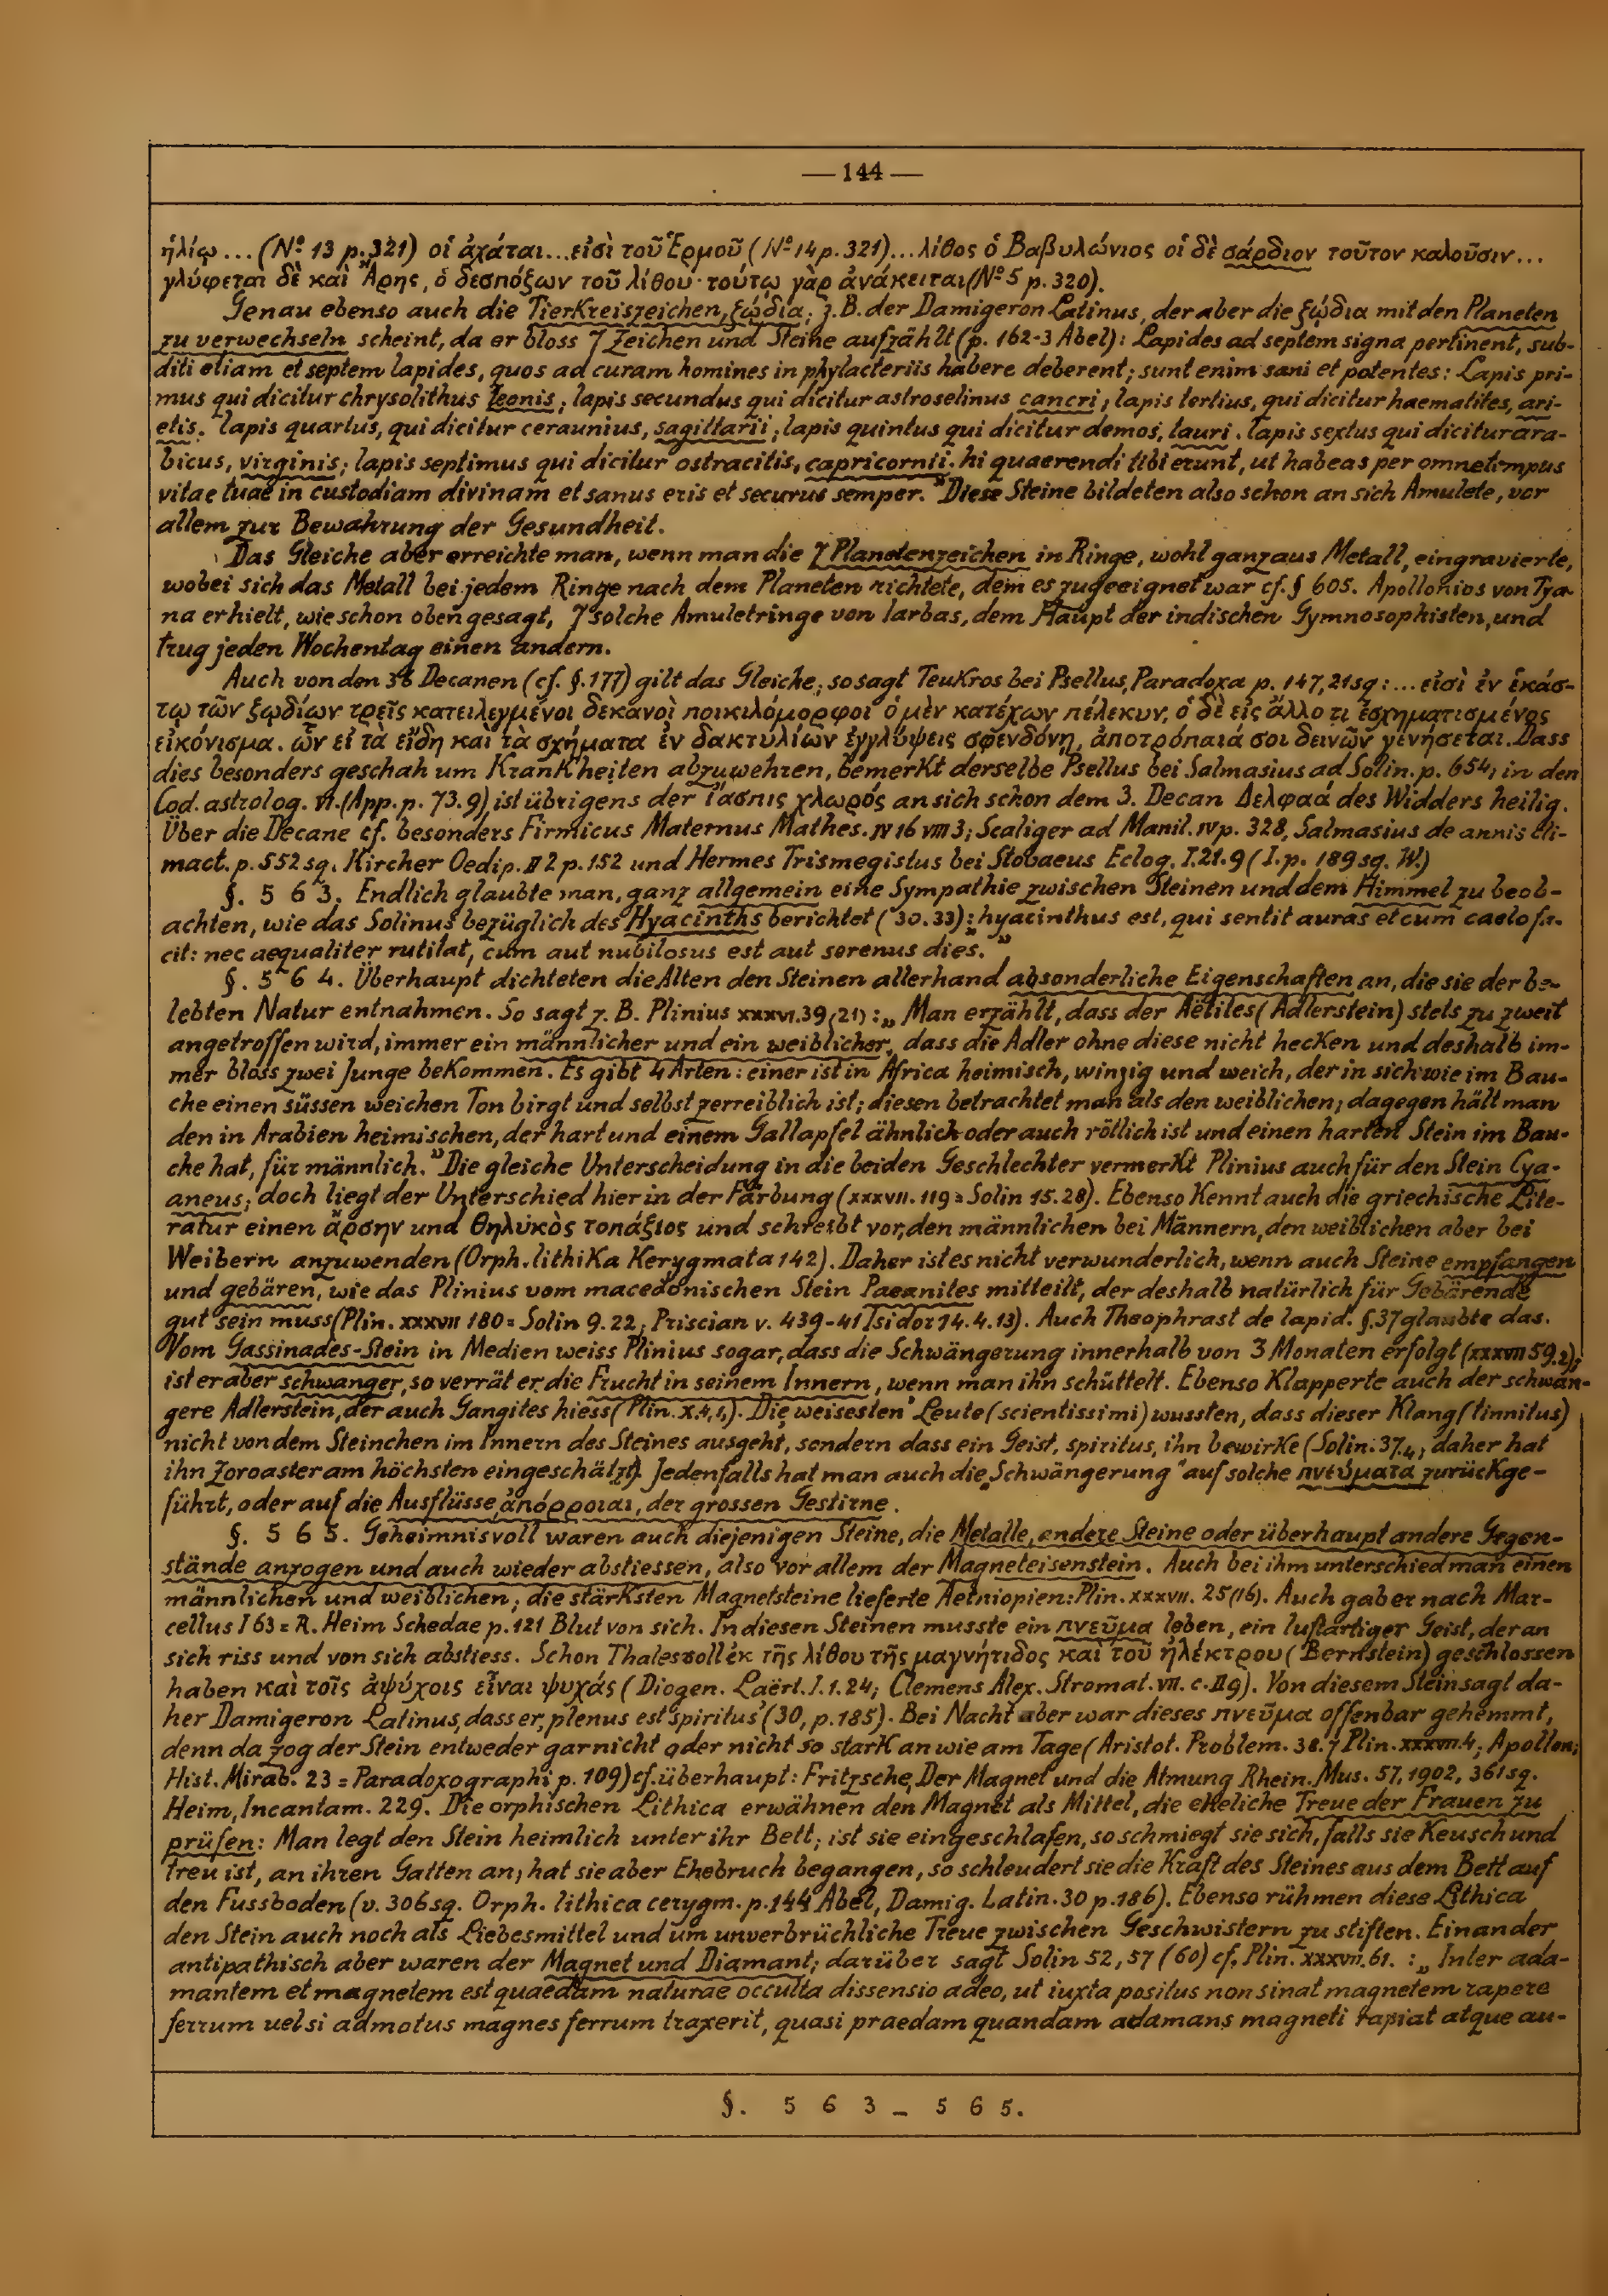 — 144 —
ἡλίῳ ... (Nº 13 p. 321) οἱ ἀχάται...εἰσὶ τοῦ Ἑρμοῦ (Nº 14 p. 321)...λίθος ὁ Βαβυλώνιος οἱ δὲ σάρδιον τοῦτον καλοῦσιν...
γλύφεται δὲ καὶ Ἄρης, ὁ δεσπόζων τοῦ λίθου· τούτῳ γὰρ ἀνάκειται (Nº 5 p. 320).
Genau ebenso auch die Tierkreiszeichen, ζῴδια; z.B. der Damigeron Latinus, der aber die ζῴδια mit den Planeten
zu verwechseln scheint, da er bloss 7 Zeichen und Steine aufzählt (p. 162-3 Abel): Lapides ad septem signa pertinent, sub-
diti etiam et septem lapides, quos ad curam homines in phylacteriis habere deberent; sunt enim sani et potentes: Lapis pri-
mus qui dicitur chrysolithus leonis; lapis secundus qui dicitur astroselinus cancri; lapis tertius, qui dicitur haematites, ari-
etis. lapis quartus, qui dicitur ceraunius, sagittarii; lapis quintus qui dicitur demos, tauri. lapis sextus qui dicitur ara-
bicus, virginis; lapis septimus qui dicitur ostracitis, capricornii. hi quaerendi tibi erunt, ut habeas per omne tempus
vitae tuae in custodiam divinam et sanus eris et securus semper." Diese Steine bildeten also schon an sich Amulete, vor
allem zur Bewahrung der Gesundheit.
Das Gleiche aber erreichte man, wenn man die 7 Planetenzeichen in Ringe, wohl ganz aus Metall, eingravierte,
wobei sich das Metall bei jedem Ringe nach dem Planeten richtete, dem es zugeeignet war cf. § 605. Apollonios von Tya-
na erhielt, wie schon oben gesagt, 7 solche Amuletringe von Iarbas, dem Haupt der indischen Gymnosophisten, und
trug jeden Wochentag einen andern.
Auch von den 36 Decanen (cf. §. 177) gilt das Gleiche; so sagt Teukros bei Psellus, Paradoxa p. 147, 21 sq: ... εἰσὶ ἐν ἑκάσ-
τῳ τῶν ζῳδίων τρεῖς κατειλεγμένοι δεκανοὶ ποικιλόμορφοι ὁ μὲν κατέχων πέλεκυν, ὁ δὲ εἰς ἄλλο τι ἐσχηματισμένος
εἰκόνισμα. ὧν εἰ τὰ εἴδη καὶ τὰ σχήματα ἐν δακτυλίων ἐγγλύψεις σφενδόνῃ, ἀποτρόπαιά σοι δεινῶν γενήσεται. Dass
dies besonders geschah um Krankheiten abzuwehren, bemerkt derselbe Psellus bei Salmasius ad Solin. p. 654; in den
Cod. astrolog. VI. (App. p. 73. 9) ist übrigens der ἴασπις χλωρός an sich schon dem 3. Decan Δελφαά des Widders heilig.
Über die Decane cf. besonders Firmicus Maternus Mathes. IV 16 VIII 3; Scaliger ad Manil. IV p. 328, Salmasius de annis cli-
mact. p. 552 sq. Kircher Oedip. II 2 p. 152 und Hermes Trismegistus bei Stobaeus Eclog. I. 21. 9 (I. p. 189 sq. W.)
§. 5 6 3. Endlich glaubte man, ganz allgemein eine Sympathie zwischen Steinen und dem Himmel zu beob-
achten, wie das Solinus bezüglich des Hyacinths berichtet (30. 33): „hyacinthus est, qui sentit auras et cum caelo fa-
cit: nec aequaliter rutilat, cum aut nubilosus est aut serenus dies."
§. 5 6 4. Überhaupt dichteten die Alten den Steinen allerhand absonderliche Eigenschaften an, die sie der be-
lebten Natur entnahmen. So sagt z. B. Plinius XXXVI. 39 (21): „Man erzählt, dass der Aëtites (Adlerstein) stets zu zweit
angetroffen wird, immer ein männlicher und ein weiblicher, dass die Adler ohne diese nicht hecken und deshalb im-
mer bloss zwei Junge bekommen. Es gibt 4 Arten: einer ist in Africa heimisch, winzig und weich, der in sich wie im Bau-
che einen süssen weichen Ton birgt und selbst zerreiblich ist; diesen betrachtet man als den weiblichen; dagegen hält man
den in Arabien heimischen, der hart und einem Gallapfel ähnlich oder auch rötlich ist und einen harten Stein im Bau-
che hat, für männlich." Die gleiche Unterscheidung in die beiden Geschlechter vermerkt Plinius auch für den Stein Cya-
aneus; doch liegt der Unterschied hier in der Färbung (XXXVII. 119 = Solin 15. 28). Ebenso kennt auch die griechische Lite-
ratur einen ἄρσην und θηλυκὸς τοπάξιος und schreibt vor, den männlichen bei Männern, den weiblichen aber bei
Weibern anzuwenden (Orph. lithika Kerygmata 142). Daher ist es nicht verwunderlich, wenn auch Steine empfangen
und gebären, wie das Plinius vom macedonischen Stein Paeanites mitteilt, der deshalb natürlich für Gebärende
gut sein muss (Plin. XXXVII 180 = Solin 9. 22; Priscian v. 439-41 Isidor 14. 4. 13). Auch Theophrast de lapid. §. 37 glaubte das.
Vom Gassinades-Stein in Medien weiss Plinius sogar, dass die Schwängerung innerhalb von 3 Monaten erfolgt (XXXVII 59. 2);
ist er aber schwanger, so verrät er die Frucht in seinem Innern, wenn man ihn schüttelt. Ebenso klapperte auch der schwan-
gere Adlerstein, der auch Gangites hiess (Plin. X. 4, 1). Die weisesten Leute (scientissimi) wussten, dass dieser Klang (tinnitus)
nicht von dem Steinchen im Innern des Steines ausgeht, sondern dass ein Geist, spiritus, ihn bewirke (Solin. 37. 4; daher hat
ihn Zoroaster am höchsten eingeschätzt). Jedenfalls hat man auch die „Schwängerung" auf solche πνεύματα zurückge-
führt, oder auf die Ausflüsse, ἀπόρροιαι, der grossen Gestirne.
§. 5 6 5. Geheimnisvoll waren auch diejenigen Steine, die Metalle, andere Steine oder überhaupt andere Gegen-
stände anzogen und auch wieder abstiessen, also vor allem der Magneteisenstein. Auch bei ihm unterschied man einen
männlichen und weiblichen; die stärksten Magnetsteine lieferte Aethiopien: Plin. XXXVII. 25 (16). Auch gab er nach Mar-
cellus I 63 = R. Heim Schedae p. 121 Blut von sich. In diesen Steinen musste ein πνεῦμα leben, ein luftartiger Geist, der an
sich riss und von sich abstiess. Schon Thales soll ἐκ τῆς λίθου τῆς μαγνήτιδος καὶ τοῦ ἠλέκτρου (Bernstein) geschlossen
haben καὶ τοῖς ἀψύχοις εἶναι ψυχάς (Diogen. Laërt. I. 1. 24; Clemens Alex. Stromat. VII. c. II 9). Von diesem Stein sagt da-
her Damigeron Latinus, dass er „plenus est spiritus" (30, p. 185). Bei Nacht aber war dieses πνεῦμα offenbar gehemmt,
denn da zog der Stein entweder gar nicht oder nicht so stark an wie am Tage (Aristot. Problem. 38. 7 Plin. XXXVII. 4; Apollon;
Hist. Mirab. 23 = Paradoxographi p. 109) cf. überhaupt: Fritzsche, Der Magnet und die Atmung Rhein. Mus. 57, 1902, 361 sq.
Heim, Incantam. 229. Die orphischen Lithica erwähnen den Magnet als Mittel, die eheliche Treue der Frauen zu
prüfen: Man legt den Stein heimlich unter ihr Bett; ist sie eingeschlafen, so schmiegt sie sich, falls sie keusch und
treu ist, an ihren Gatten an; hat sie aber Ehebruch begangen, so schleudert sie die Kraft des Steines aus dem Bett auf
den Fussboden (v. 306 sq. Orph. lithica cerygm. p. 144 Abel, Damig. Latin. 30 p. 186). Ebenso rühmen diese Lithica
den Stein auch noch als Liebesmittel und um unverbrüchliche Treue zwischen Geschwistern zu stiften. Einander
antipathisch aber waren der Magnet und Diamant; darüber sagt Solin 52, 57 (60) cf. Plin. XXXVII. 61. : „Inter ada-
mantem et magnetem est quaedam naturae occulta dissensio adeo, ut iuxta positus non sinat magnetem rapere
ferrum uel si admotus magnes ferrum traxerit, quasi praedam quandam adamans magneti rapiat atque au-
§. 5 6 3 – 5 6 5.